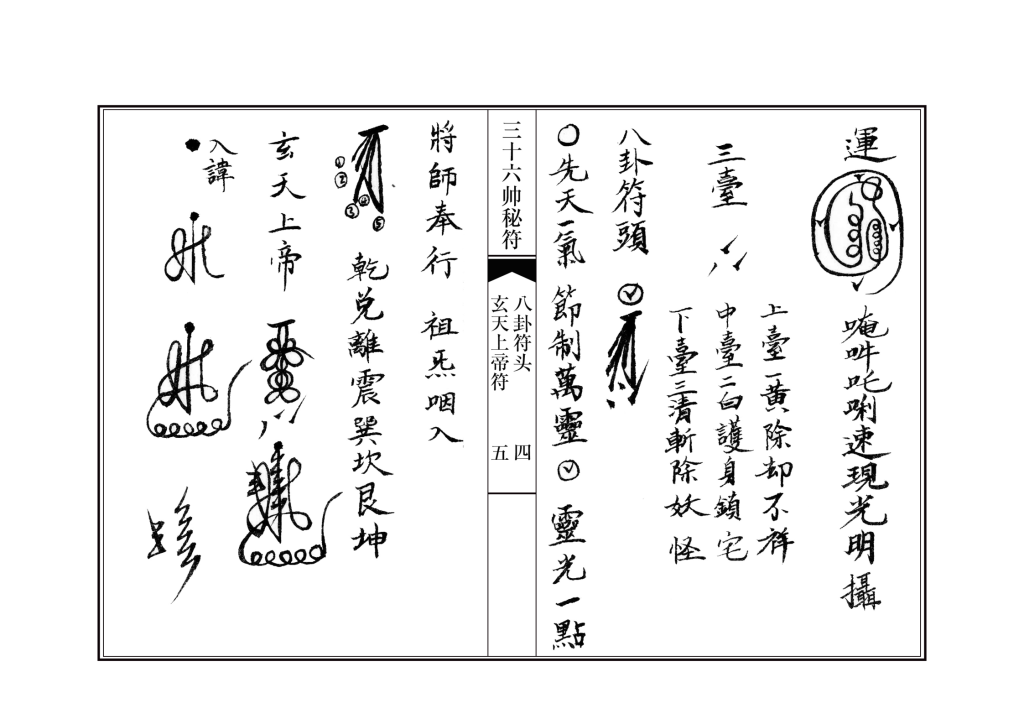 運
唵吽吒唎速現光明攝
三臺
上臺一黃除却不祥
中臺二白護身鎖宅
下臺三清斬除妖怪
八卦符頭
先天一氣 節制萬靈 靈光一點
三十六帅秘符
八卦符头 四
玄天上帝符 五
將師奉行 祖炁咽入
① ② ③ ④ ⑤
乾兌離震巽坎艮坤
玄天上帝
入諱